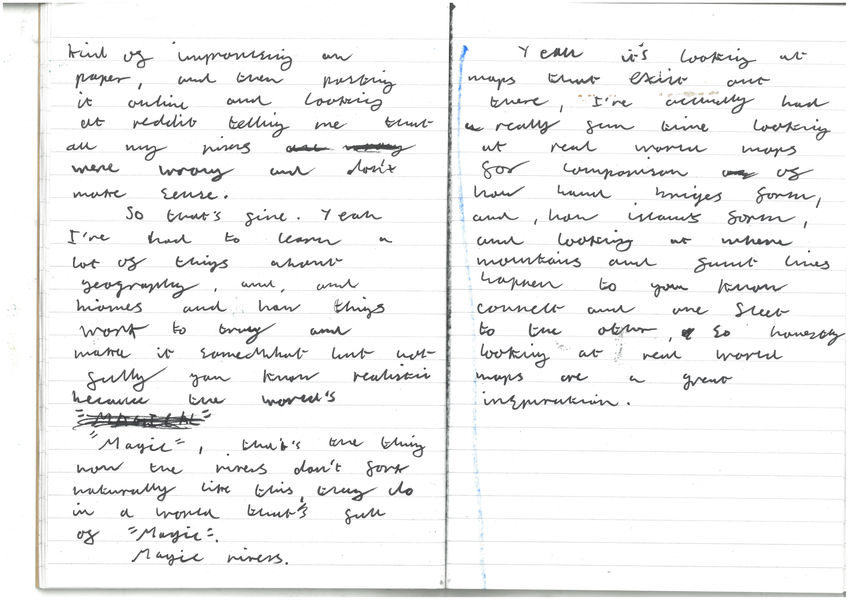 kind of improvising on
paper, and then posting
it online and looking
at reddit telling me that
all my rivers are wrong
were wrong and don't
make sense.
So that's fine. Yeah
I've had to learn a
lot of things about
geography, and, and
biomes and how things
work to try and
make it somewhat but not
fully you know realistic
because the world's
"MAGICAL"
"Magic", that's the thing
now the rivers don't fork
naturally like this, they do
in a world that's full
of "Magic".
Magic rivers.
Yeah it's looking at
maps that exist out
there, I've actually had
a really fun time looking
at real world maps
for comparison of
how land bridges form,
and, how islands form,
and looking at where
mountains and fault lines
happen to you know
connect and one
to the other, so honestly
looking at real world
maps are a great
inspiration.